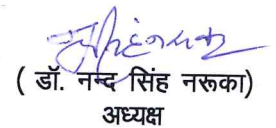 ( डॉ. नन्द सिंह नरूका)
अध्यक्ष